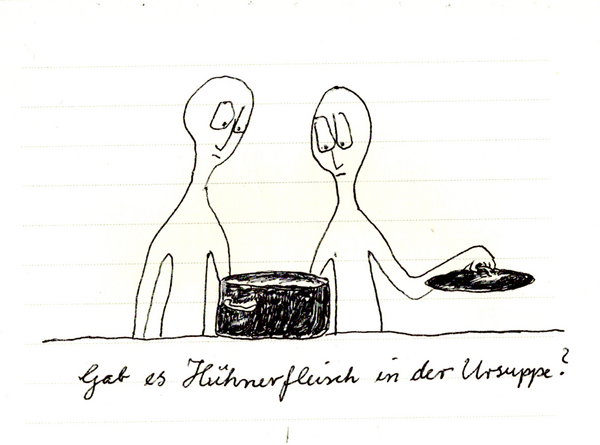 Gab es Hühnerfleisch in der Ursuppe?